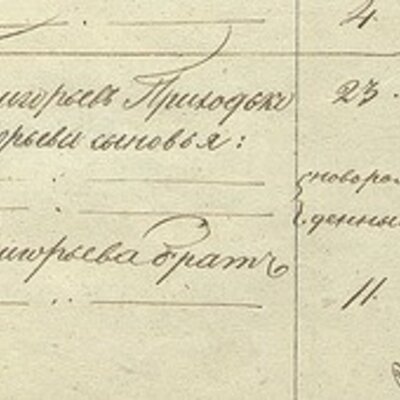 4.
игорьевъ Приходько 23.
орьевы сыновья:
новорож
денны
игорьева братъ
11.